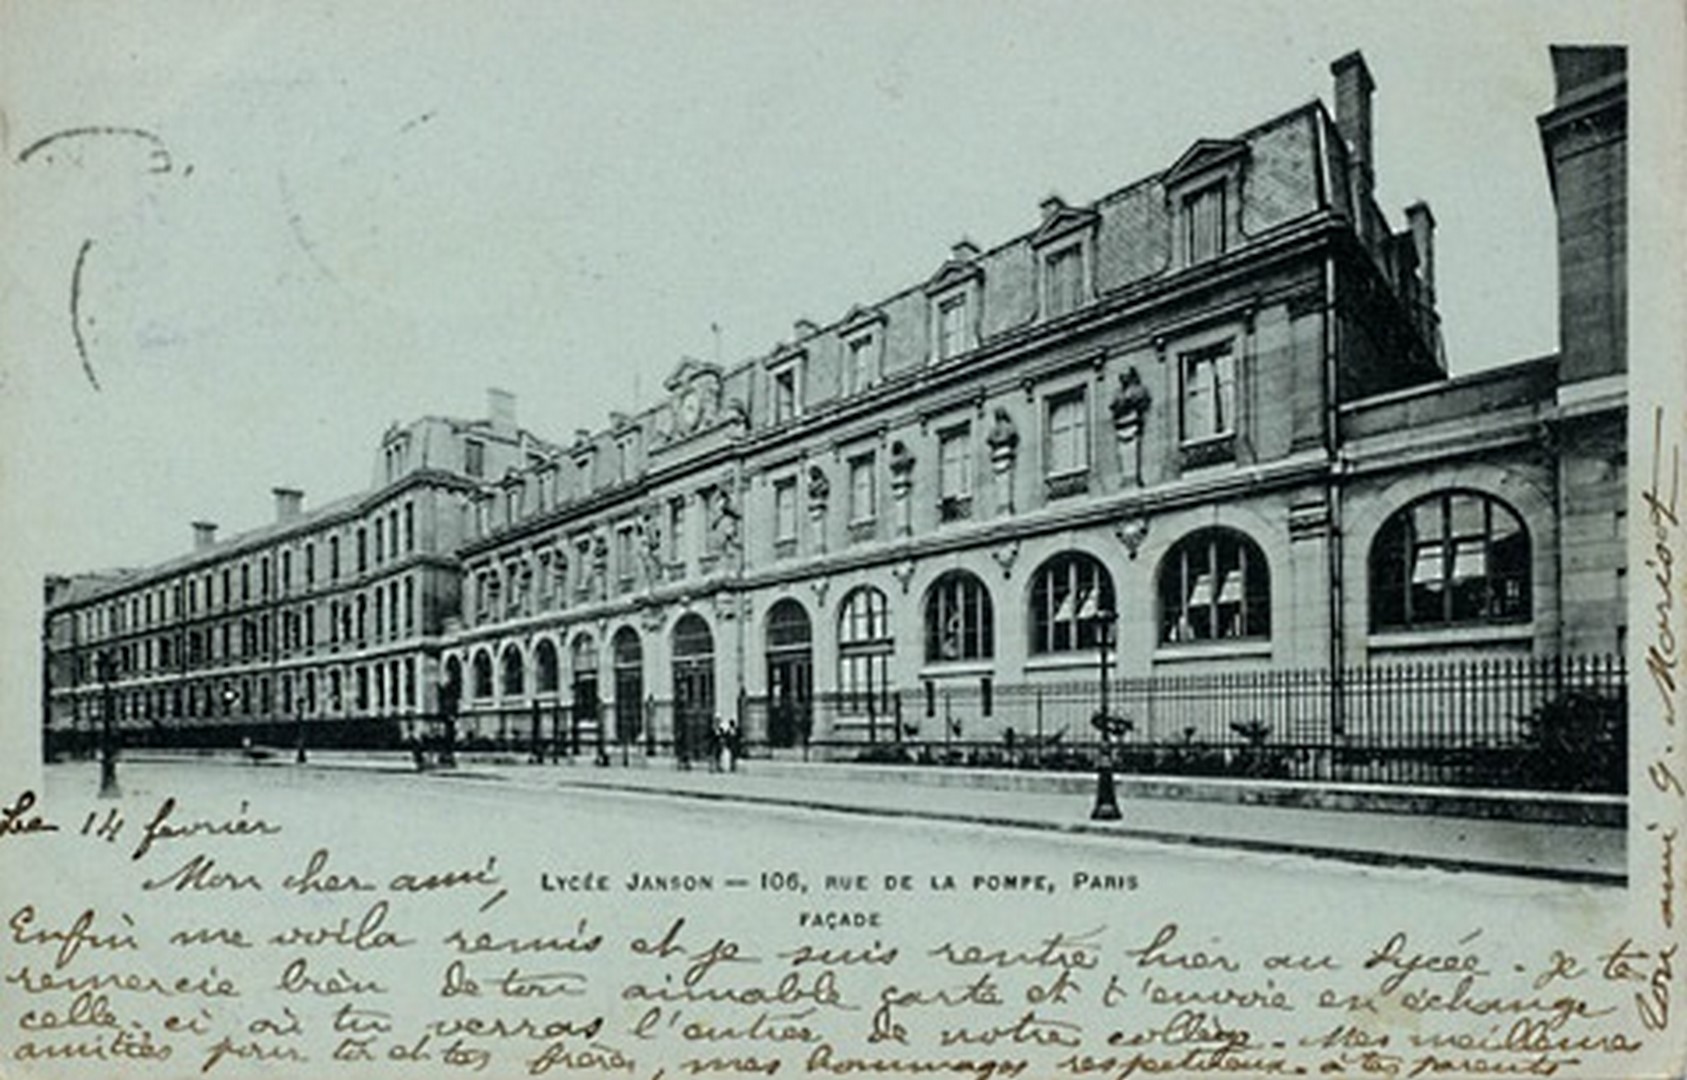 Le 14 fevrier
Mon cher ami,
LYCÉE JANSON — 106, RUE DE LA POMPE, PARIS
FAÇADE
Enfin me voila remis et je suis rentré hier au Lycée. Je te
remercie bien de ton aimable carte et t'envoie en échange
celle-ci où tu verras l'entrée de notre collège. Mes meilleures
amitiés pour toi et tes frères, mes hommages respectueux à tes parents
Ton ami G. Morisot